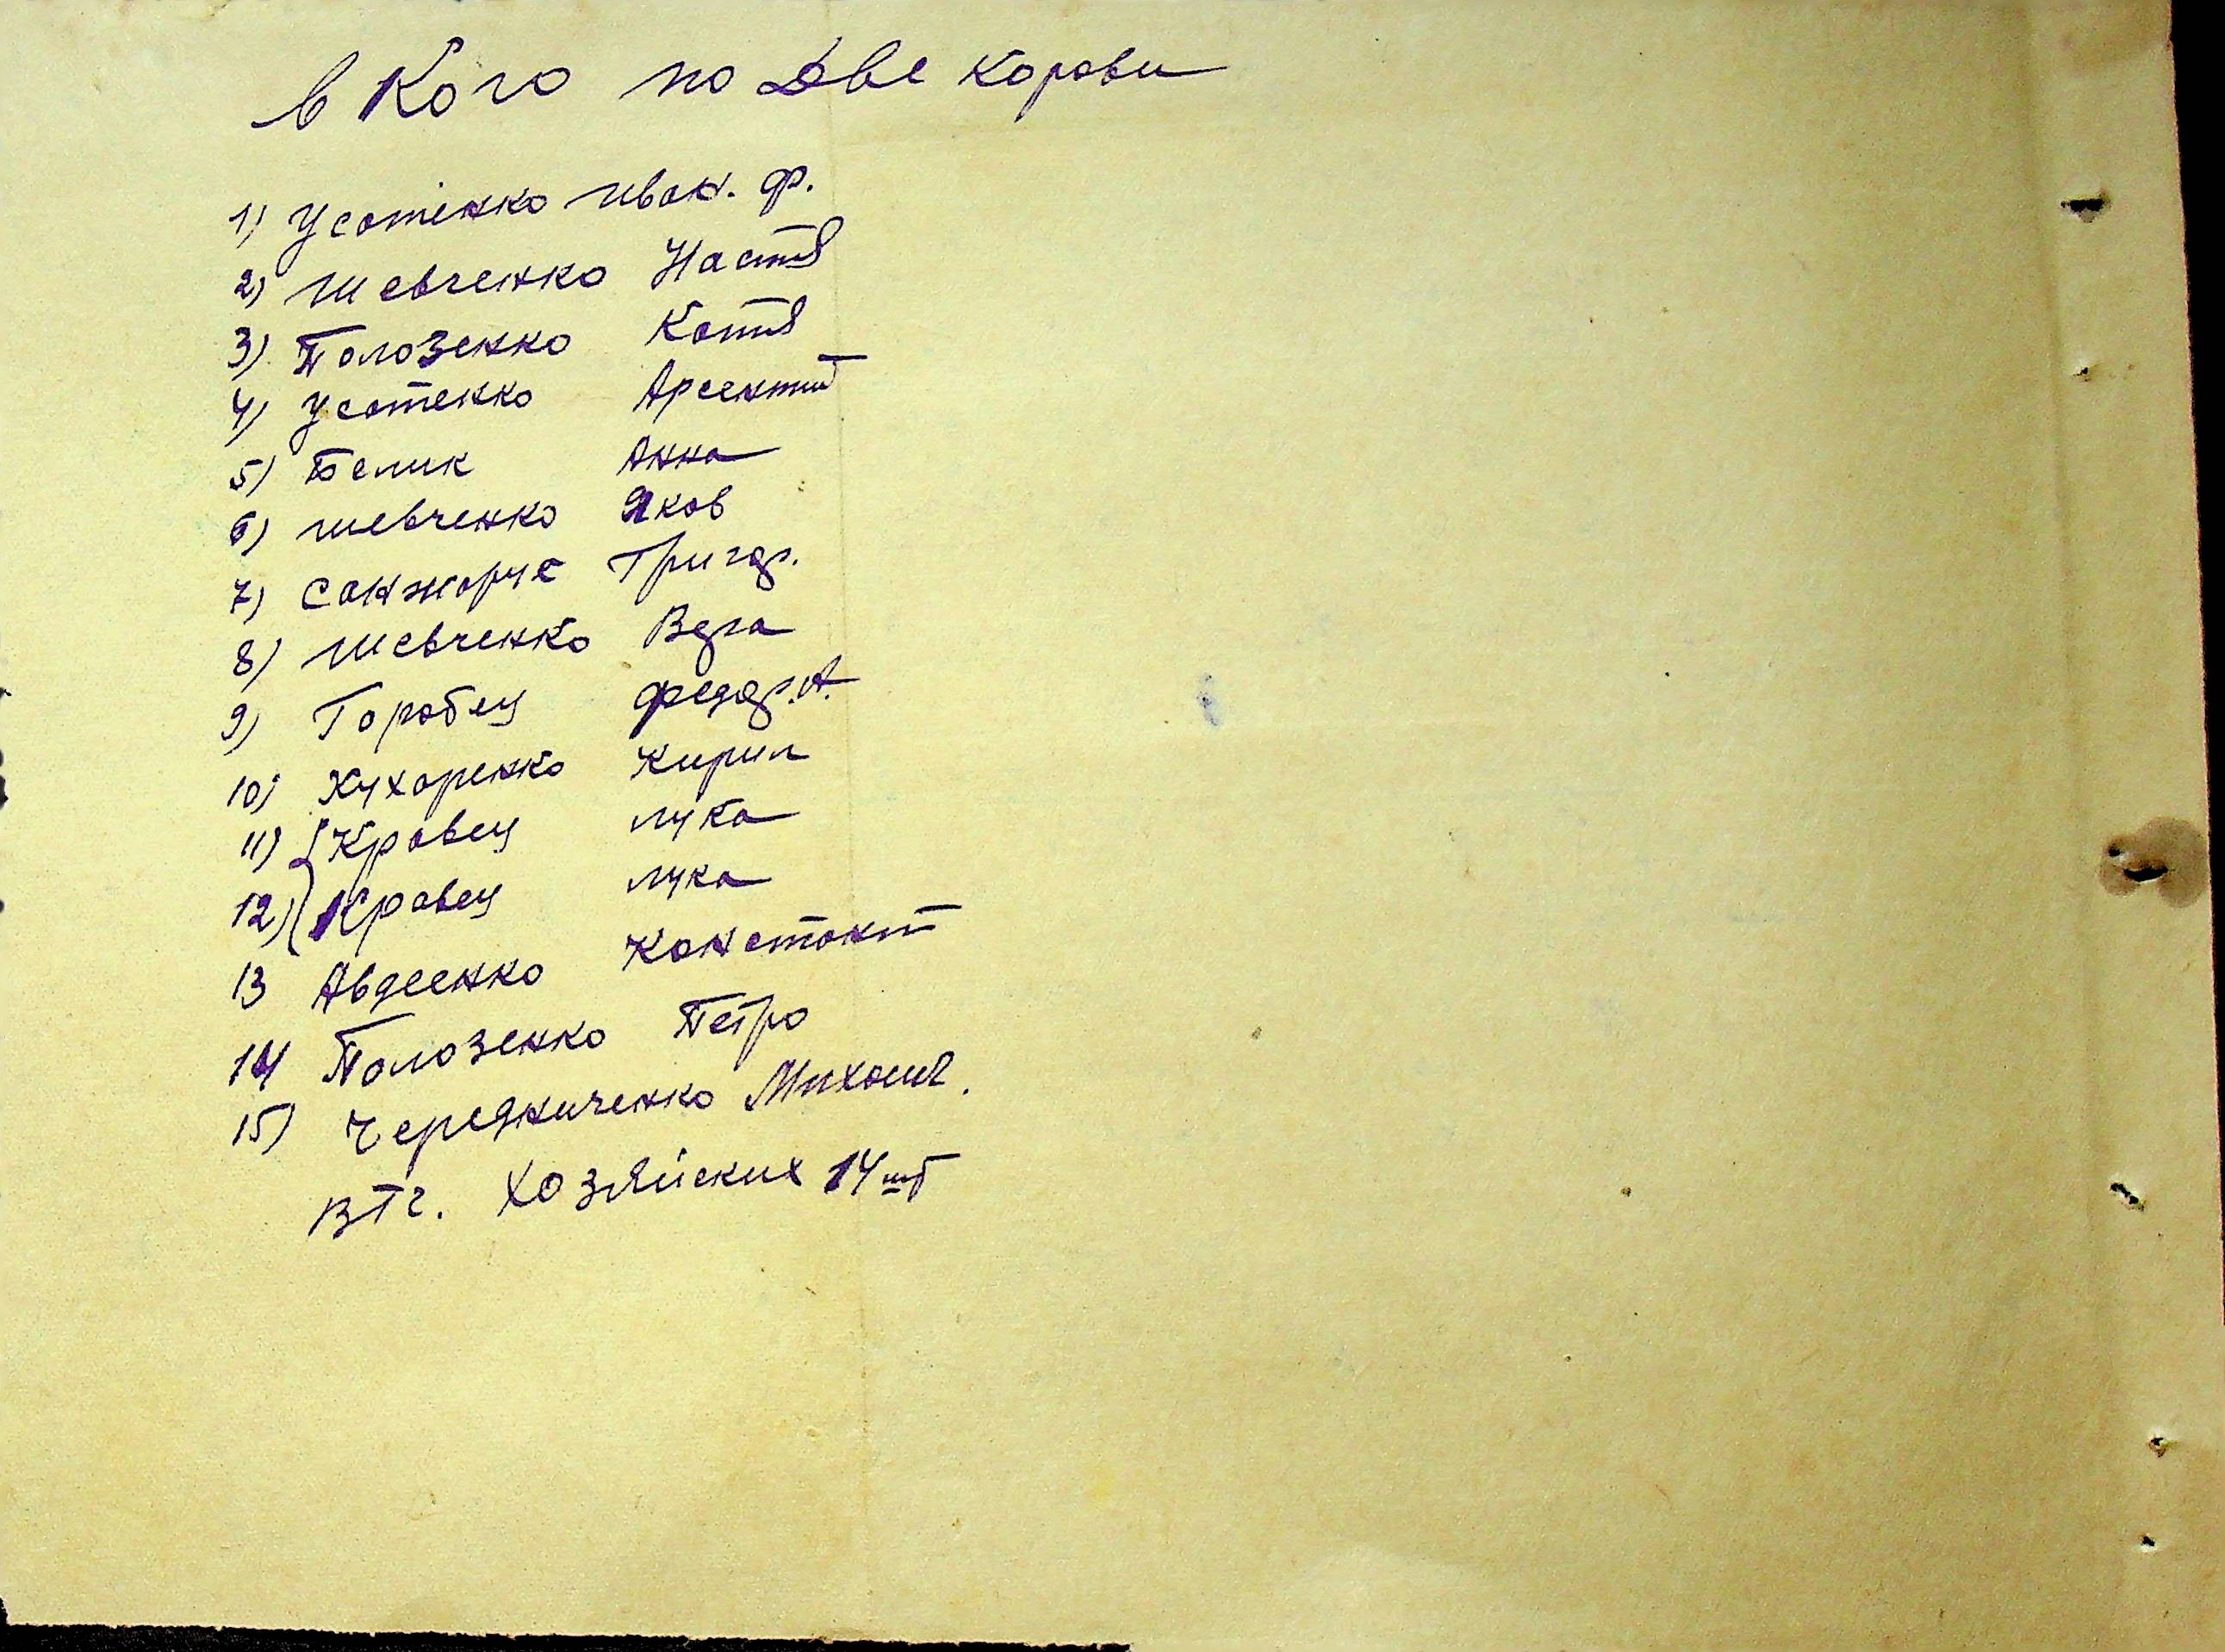 в Кого по две корови
1) Усотенко иван. ф.
2) шевченко Настя
3) Полозенко Катя
4) усотенко Арсентий
5) Белик Анна
6) шевченко Яков
7) Санжарук Григор.
8) шевченко Вера
9) Горобец федор. А.
10) Кухаренко Кирил
11) Кравец лука
12) Кравец лука
13 Авдеенко Констант
14 Полозенко Петро
15) Чередниченко Михаил.
ВТч. Хозяйских 14 шт